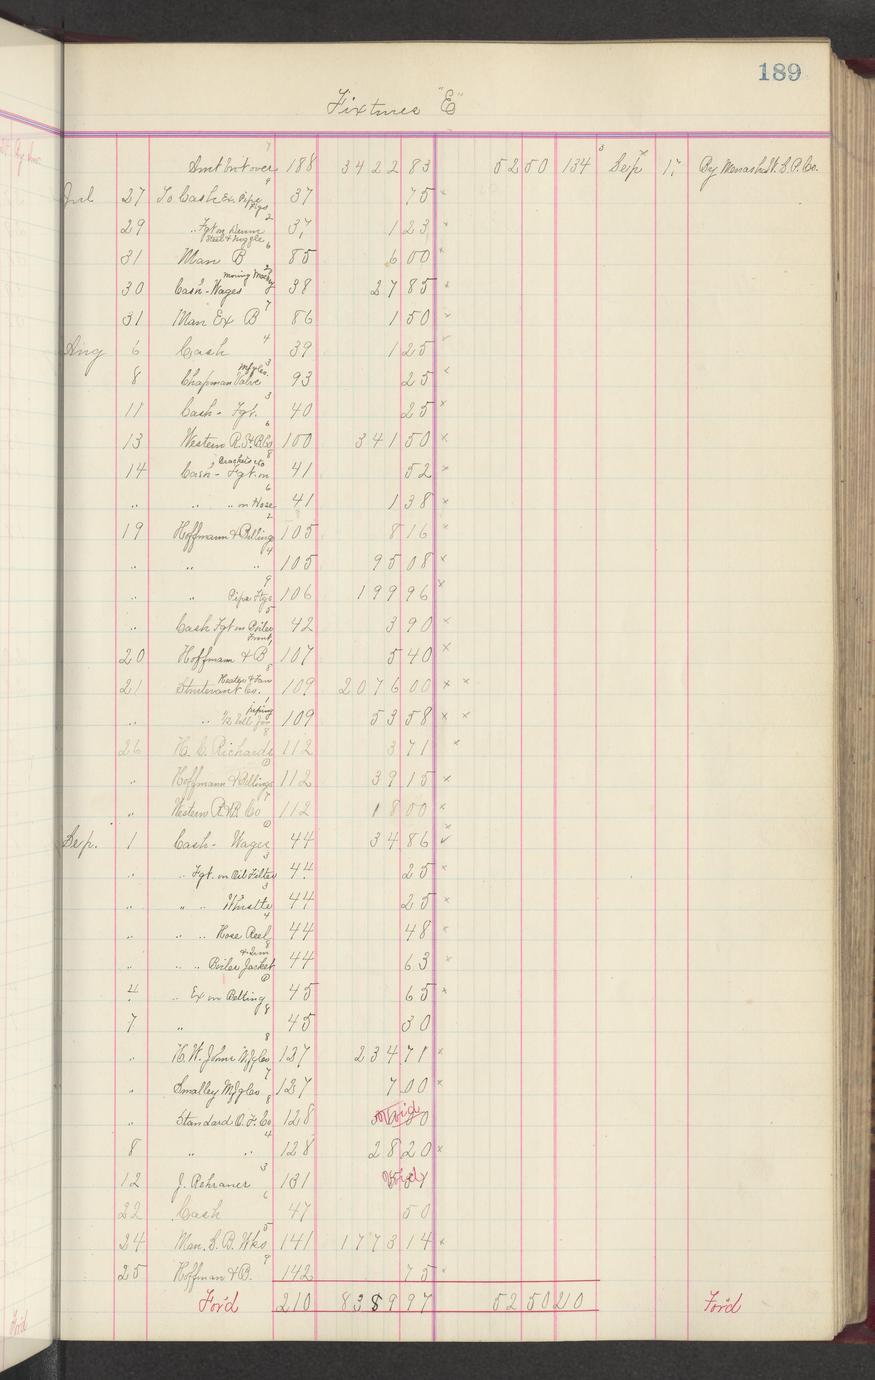 189
Fixtures "E"
Amt brot over 188 3422 83 52 50 134 Sep 17 By Menasha
Jul 27 To Cash Ex Pipe Figs 37 75
29 " Fgt on Drum Steel & Noggle 37 1 23
31 Man B 85 6 00
30 Cash - Wages moving Mach'y 38 27 85
31 Man Ex B 86 1 50
Aug 6 Cash 39 1 25
8 Chapman Valve Mfg Co. 93 25
11 Cash - Fgt. 40 25
13 Western R. St. B. Co 100 341 50
14 Cash - Fgt. on Brackets etc 41 52
" " " on Hose 41 1 38
19 Hoffmann & Billings 105 8 16
" " " 105 95 08
" " Pipe Ftgs 106 199 96
" Cash Fgt on Boiler Front 42 3 90
20 Hoffmann & B 107 5 40
21 Sturtevant Co. Heater & Fan 109 2076 00
" " piping 109 53 58
26 H. C. Richards 112 3 71
" Hoffmann & Billings 112 39 15
" Western R & B. Co 112 18 00
Sep. 1 Cash - Wages 44 34 86
" " Fgt. on Oil Filter 44 25
" " " Whistle 44 25
" " " Hose Reel 44 48
" " " Boiler Jacket 44 63
4 " Ex on Belting 45 65
7 " 45 30
" H. W. Johns Mfg Co. 127 234 71
" Smalley Mfg Co 127 7 00
" Standard O. F. Co 128 Void
8 " " 128 28 20
12 J. Rehraner 131 Void
22 Cash 47 50
24 Man. S. B. Wks 141 1773 14
25 Hoffman & B. 142 75
For'd 210 8389 97 52 50 210 For'd